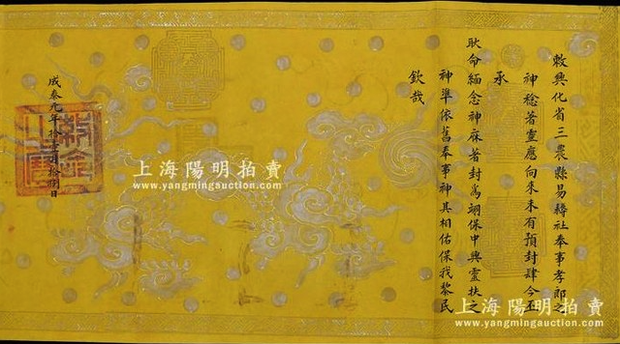 敕興化省三農縣易耨社奉事孝郎之
神稔著靈應向來未有預封肆今丕
承
耿命緬念神庥著封爲翊保中興靈扶之
神準依舊奉事神其相佑保我黎民
欽哉
成泰元年拾壹月拾捌日
敕命之寶
上海陽明拍賣
www.yangmingauction.com
上海陽明拍賣
www.yangmingauction.com